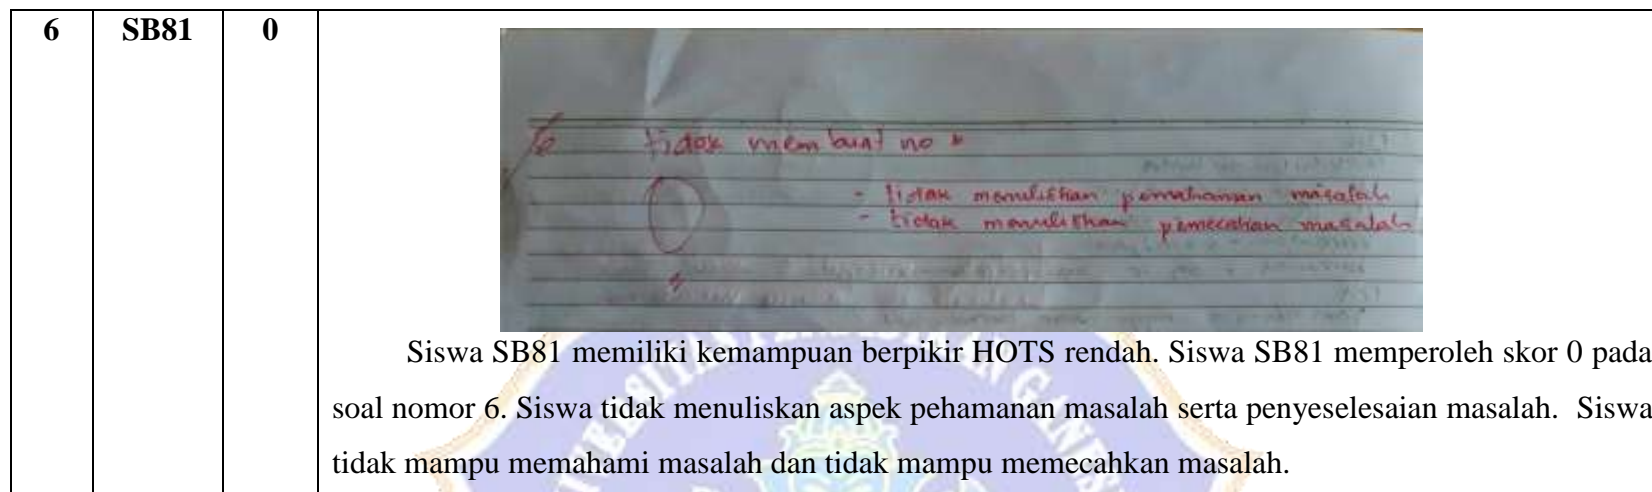 6 SB81 0
6 tidak membuat no
- tidak menuliskan pemahaman masalah
- tidak menuliskan pemecahan masalah
Siswa SB81 memiliki kemampuan berpikir HOTS rendah. Siswa SB81 memperoleh skor 0 pada
soal nomor 6. Siswa tidak menuliskan aspek pehamanan masalah serta penyeselesaian masalah. Siswa
tidak mampu memahami masalah dan tidak mampu memecahkan masalah.